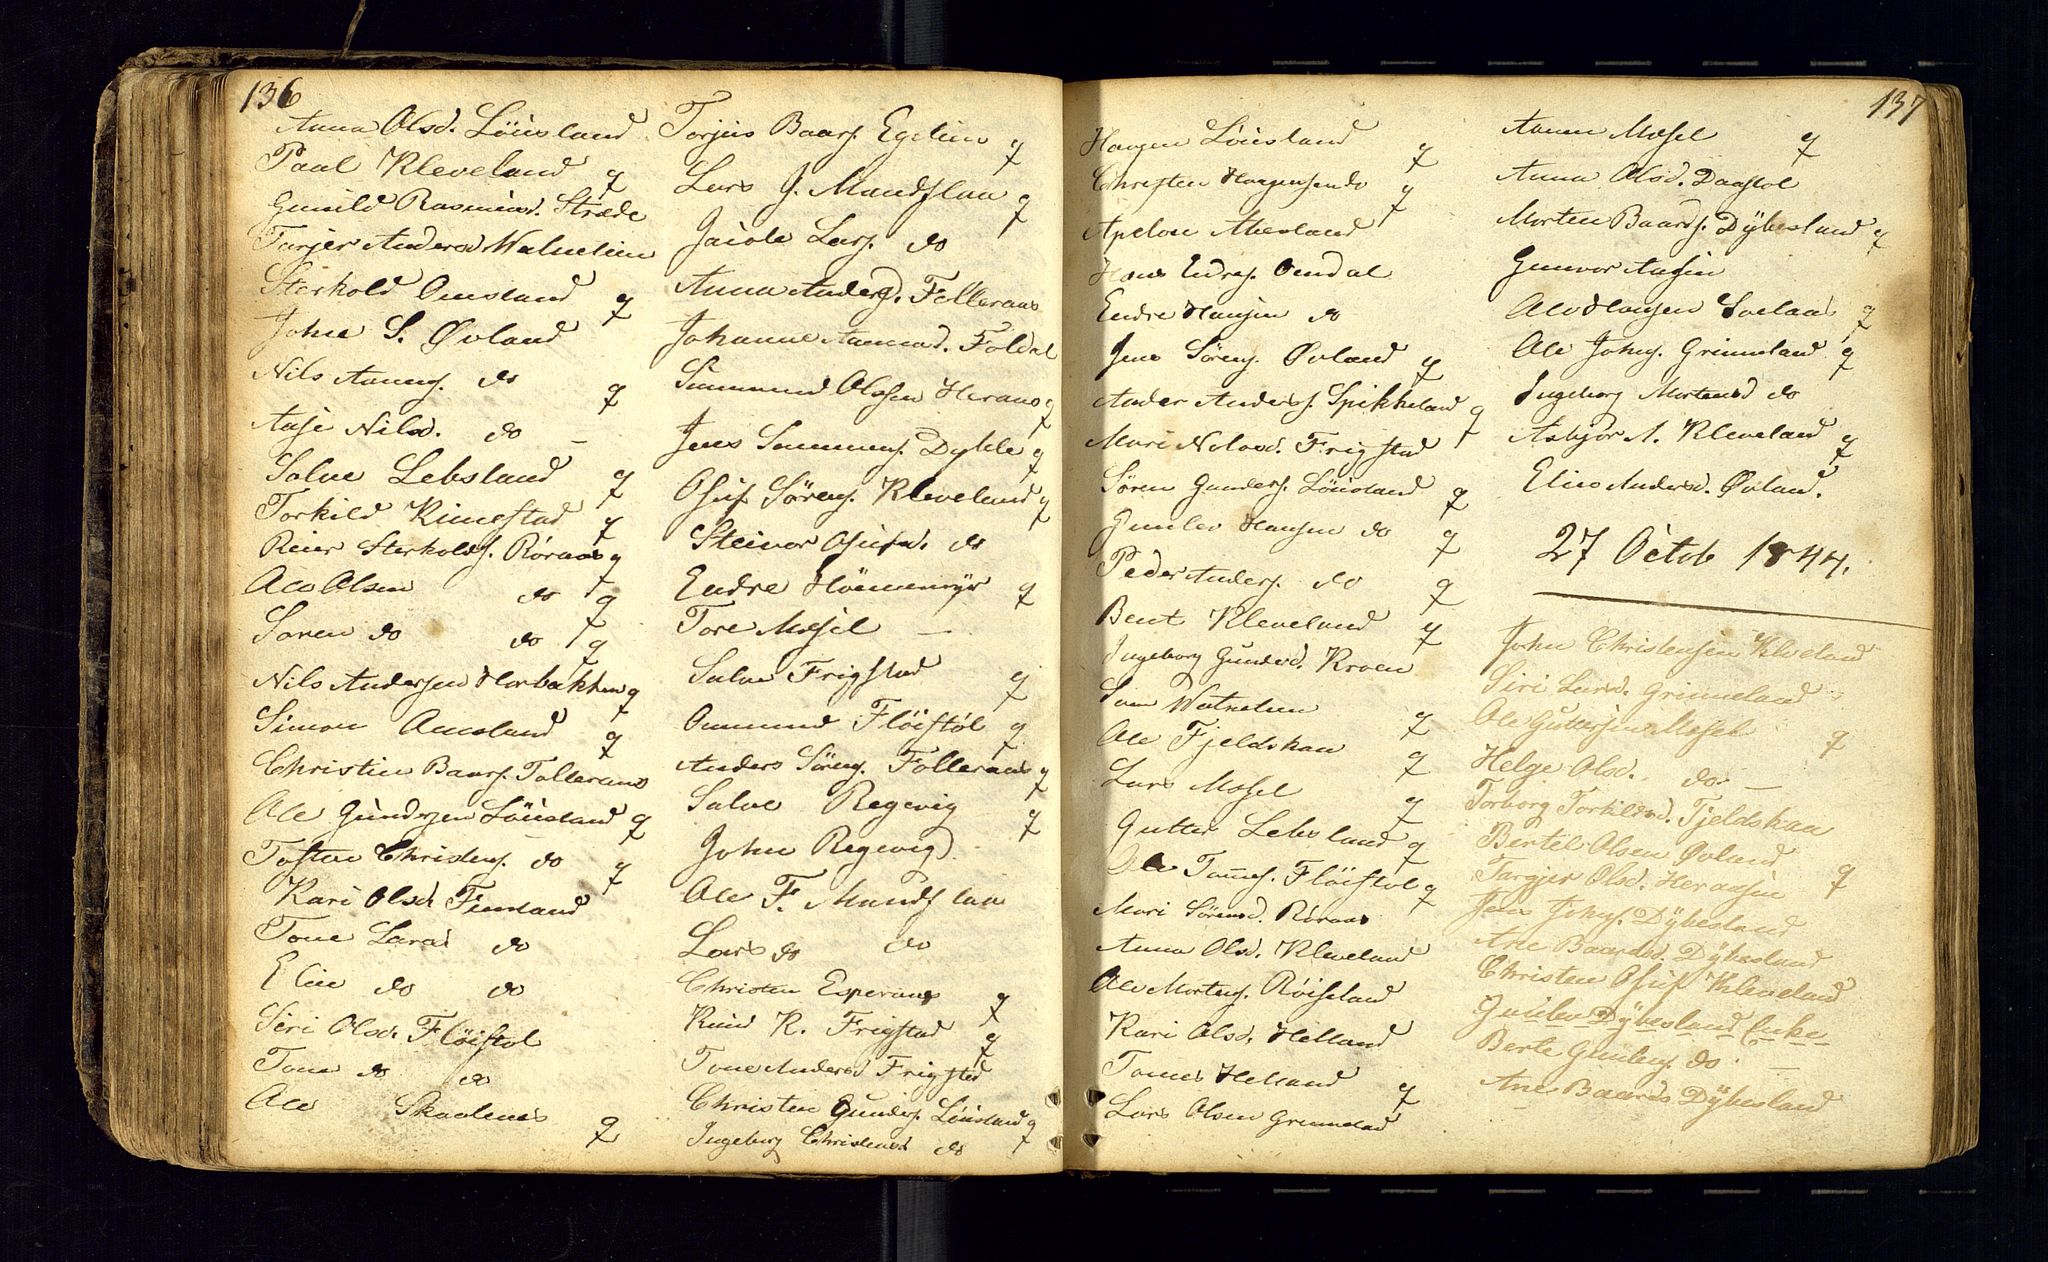 136
Anna Olsd. Löiisland
Paul Kleveland q
Gunild Rasmusd. Stræde
Tarjer Andersd Watnelien
Sterkold Omsland q
John S. Øvland
Nils Aanens. do q
Aase Nilsd. do –
Salve Lebsland q
Torkild Rimestad q
Reier Sterkolds. Röraas q
Ale Olsen do q
Søren do do q
Nils Andersen Harbakken q
Simon Aaesland q
Christen Baars. Folleraas
Ale Gundersen Löiisland q
Tosten Christens. do q
Kari Olsd Finsland
Tone Larsd do
Elie do do
Siri Olsd. Flöistöl
Tone do do
Ale Skaalenes q
Torjus Baars. Egelien q
Lars J. Mandflaa q
Jacob Lars. do
Anna Andersd. Folleraas
Johanne Aanensd. Foldal
Simmund Olsen Heraas q
Jens Sammens. Dykle q
Osuf Sörens. Kleveland q
Steinvor Osufsd. do
Endre Hönnemyr q
Tore Mosel –
Salve Frigstad q
Ommund Flöistöl q
Anders Sörens. Folleraas q
Salve Regevig q
John Regevig
Ale F. Mandflaa
Lars do do
Christen Esperaas q
Knud K. Frigstad q
Tone Andersd Frigsted
Christen Gunders. Löiisland q
Ingeborg Christensd do
137
Haagen Löiisland q
Christen Haagensen do q
Apelon Aaesland
Hans Endres. Omdal
Endre Hansen do
Jens Sörens. Øvland q
Ander Anders. Spikkeland q
Mari Nelosd. Frigstad
Sören Gunders. Löiisland q
Gunlev Hansen do q
Peder Anders. do q
Bent Kleveland q
Ingeborg Gundersd. Kroen
Som Watnelien q
Ale Fjeldskaa q
Lars Mosel q
Gutter Lebsland q
Ole Tommes. Flöistöl q
Mari Sörensd. Röraas
Anna Olsd. Kleveland
Ale Mortens. Röiseland
Kari Olsd. Helland
Tomes Helland q
Lars Olsen Grimeland
Aanen Mosel q
Anna Olsd. Daastöl
Morten Baards. Dÿbesland q
Gunvor Aasen
Ale Hansen Svelaas q
Ale Johns. Grimeland q
Ingeborg Mortensd do
Asbjor A. Kleveland q
Elie Andersd. Øvland.
27 Octob 1844.
John Christensen Kleveland
Siri Larsd. Grimeland
Ole Guttersen Mosel q
Helge Olsd. do. –
Torborg Torkildsd. Fjeldskaa
Bertel Olsen Øvland q
Targjer Olsd. Heraasen
Jens Johns. Dÿbesland
Ane Baardsd. Dÿbesland
Christen Osufs Kleveland
Gunlev Dÿbesland Enke
Berte Gunlevs. do –
Ane Baards Dÿbesland